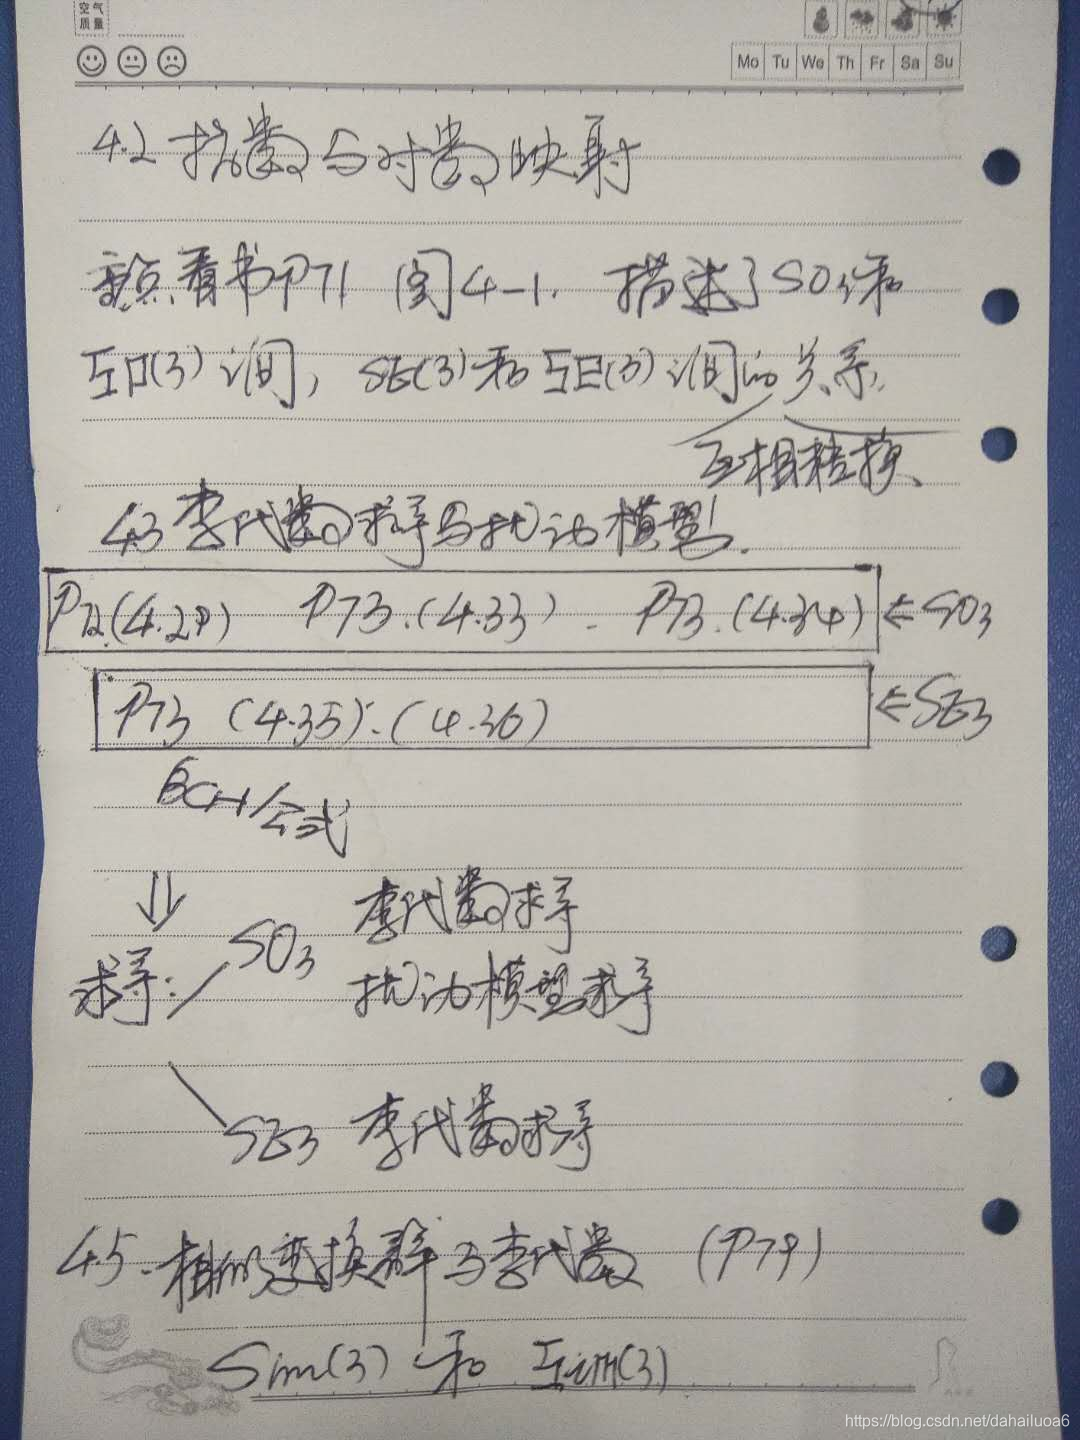 空气质量
Mo Tu We Th Fr Sa Su
4.2 指数与对数映射
重点看书P71 图4-1. 描述了SO3和
so(3)间, SE(3)和se(3)间的关系.
互相转换.
4.3 李代数求导与扰动模型.
P72(4.29) P73.(4.33) - P73.(4.34) ←SO3
P73 (4.35).(4.36) ←SE3
BCH公式
⇓
李代数求导
求导: SO3
扰动模型求导
SE3 李代数求导
4.5.相似变换群与李代数 (P79)
Sim(3)和 sim(3)
https://blog.csdn.net/dahailuoa6